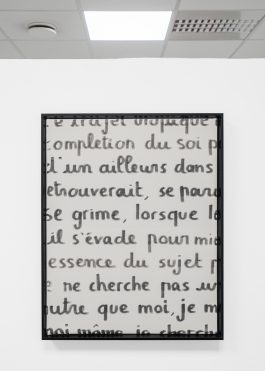 e trajet utopique
completion du soi p
d'un ailleurs dans
etrouverait, se par
se grime, lorsque l
il s'évade pour mi
essence du sujet p
ne cherche pas u
utre que moi, je m
moi même je cherch